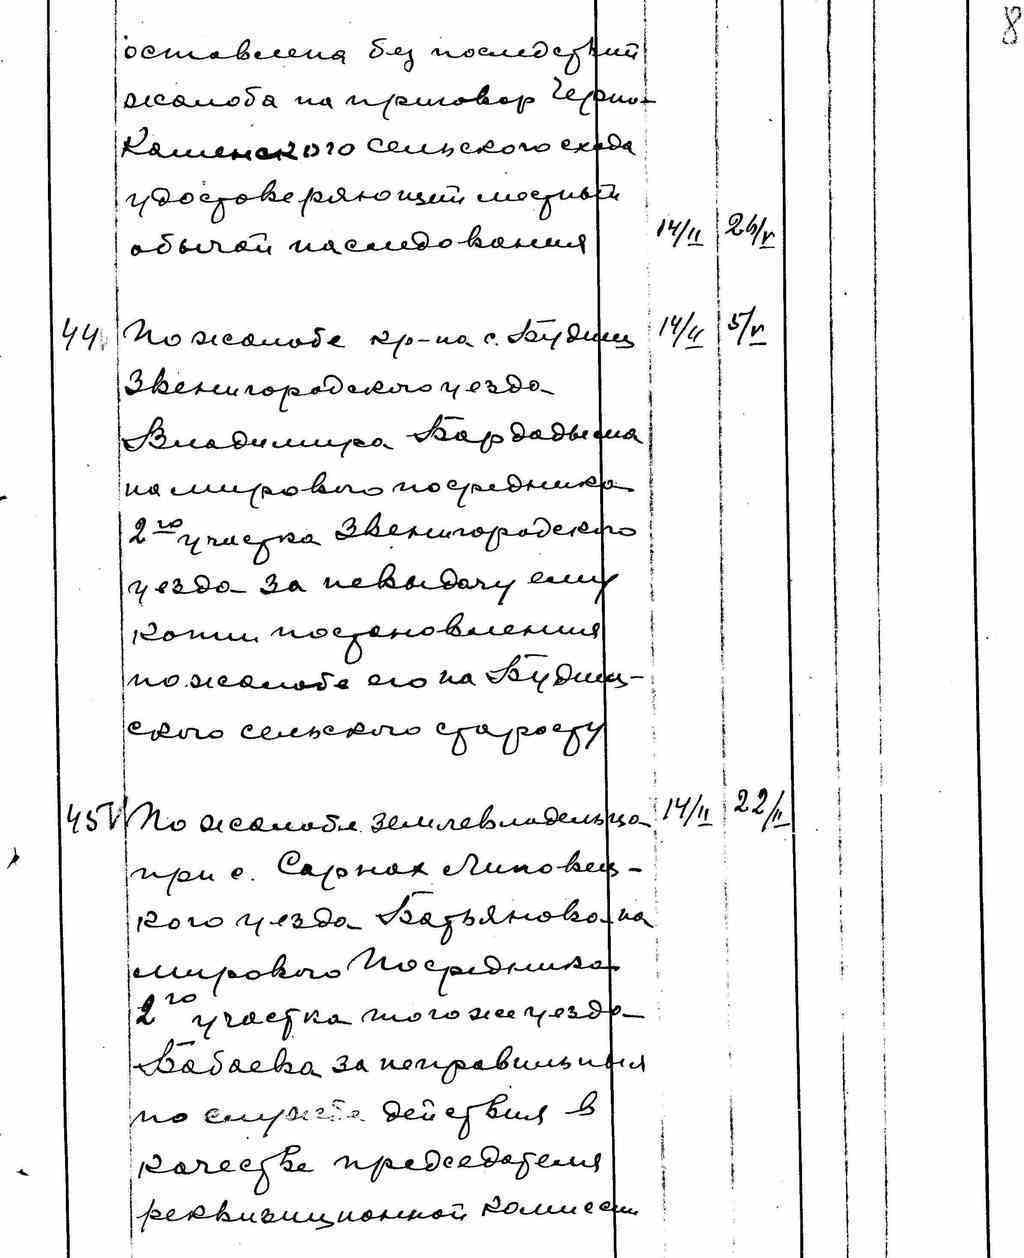 8
оставлена без последствий
жалоба на приговор Черно-
Каменского сельского схода
удостоверяющий местный
обычай наследования 14/II 26/V
44 По жалобе кр-на с. Будищ 14/II 5/V
Звенигородского уезда
Владимира Бардадыма
на мирового посредника
2го участка Звенигородского
уезда за невыдачу ему
копии постановления
по жалобе его на Будищ-
ского сельского старосту
45 V По жалобе землевладельца 14/II 22/II
при с. Сарнах Липовец-
кого уезда Батьянова на
мирового Посредника
2го участка того же уезда
Бабаева за неправильныя
по службе действия в
качестве председателя
реквизиционной комиссии